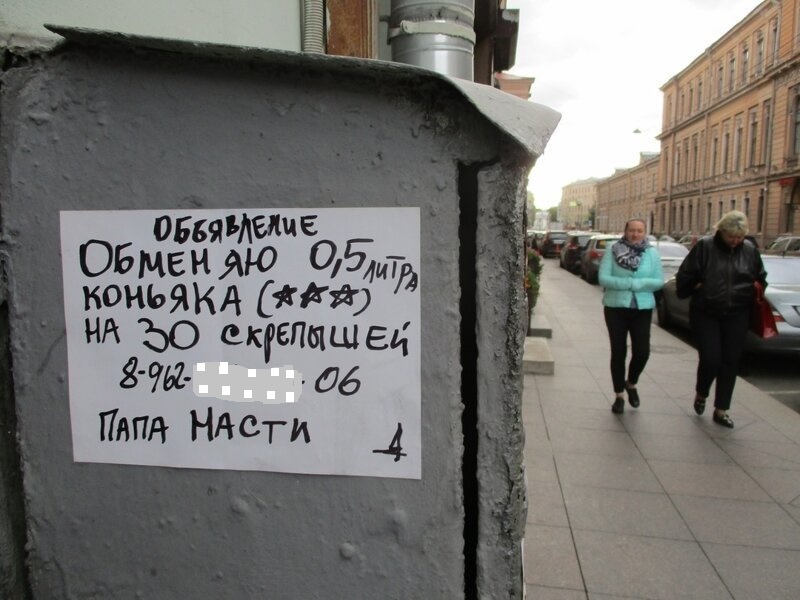 ОБЪЯВЛЕНИЕ
ОБМЕНЯЮ 0,5 ЛИТРА
КОНЬЯКА (★★★)
НА 30 СКРЕПЫШЕЙ
8-962- - 06
ПАПА НАСТИ